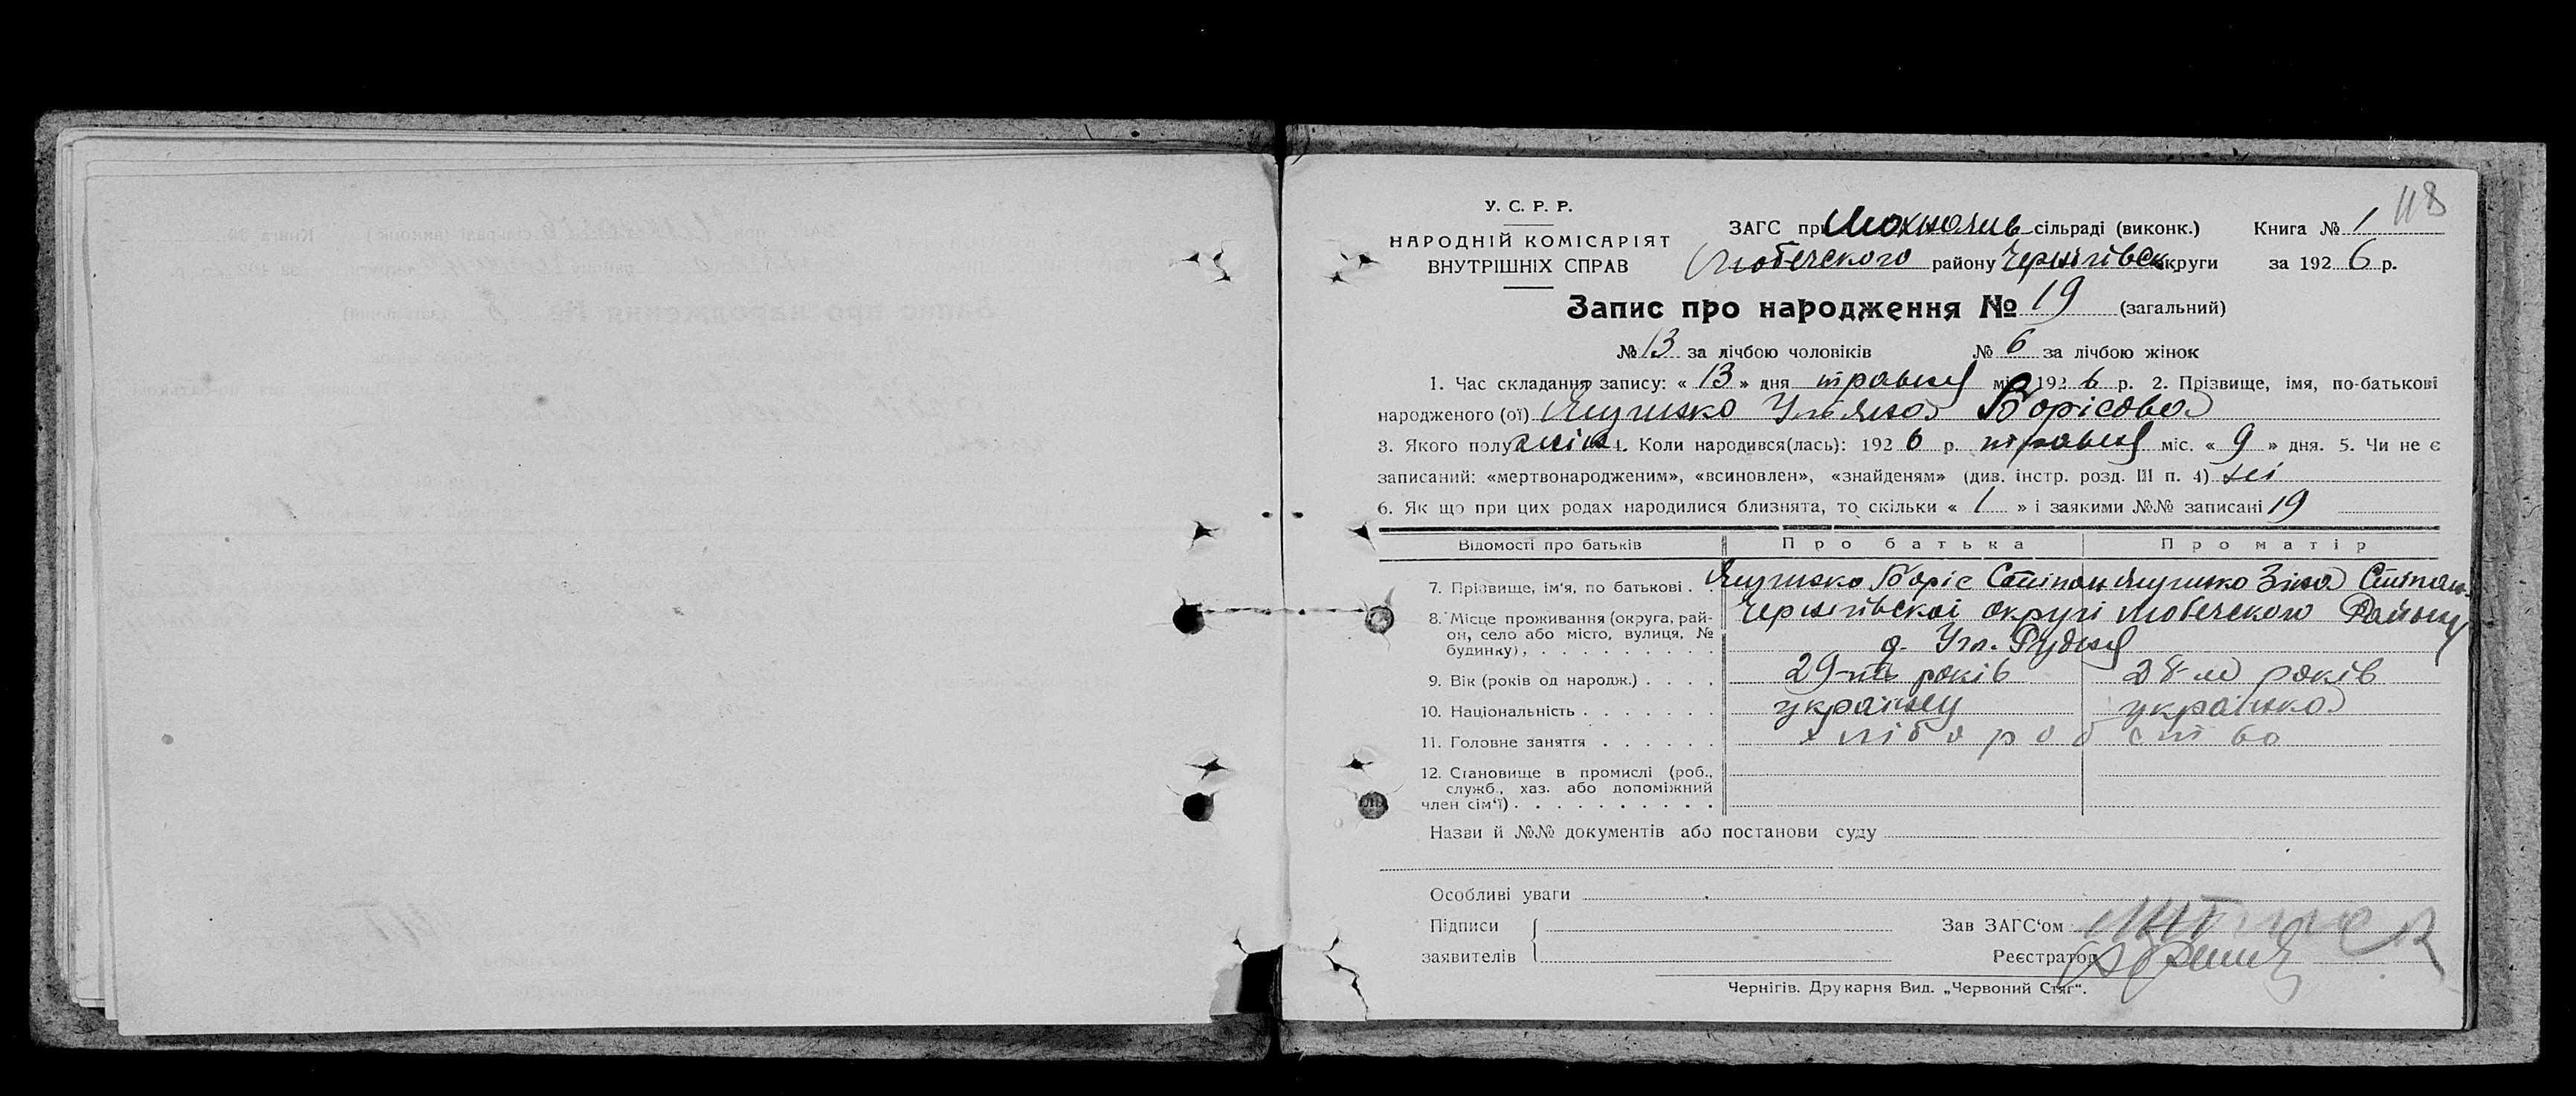 118
У. С. Р. Р.
НАРОДНІЙ КОМІСАРІЯТ
ВНУТРІШНІХ СПРАВ
ЗАГС при сільраді (виконк.) Книга № 1
Любечского району Чернігівськ округи за 1926 р.
Запис про народження № 19 (загальний)
№ 13 за лічбою чоловіків № 6 за лічбою жінок
1. Час складання запису: « 13 » дня травня міс. 1926 р. 2. Прізвище, імя, по-батькові
народженого (ої) Ульяна Борісова
3. Якого полу жін 4. Коли народився(лась): 1926 р. травня міс. « 9 » дня. 5. Чи не є
записаний: «мертвонародженим», «всиновлен», «знайденям» (див. інстр. розд. III п. 4) ні
6. Як що при цих родах народилися близнята, то скільки « 1 » і заякими №№ записані 19
Відомості про батьків Про батька Про матір
7. Прізвище, ім'я, по батькові . . Боріс Стіпан Зіна Стіпан
8. Місце проживання (округа, рай- Чернігівскої округі Любечского Району
он, село або місто, вулиця, №
будинку) . . . . . . . . . . д. Рудня
9. Вік (років од народж.) . . . . 29-ть років 28-м років
10. Національність . . . . . . . українец українка
11. Головне заняття . . . . . . хліборобство
12. Становище в промислі (роб.,
служб., хаз. або допоміжний
член сім'ї) . . . . . . . . . . .
Назви й №№ документів або постанови суду
Особливі уваги
Підписи Зав ЗАГС'ом
заявителів Реєстратор
Чернігів. Друкарня Вид. „Червоний Стяг“.